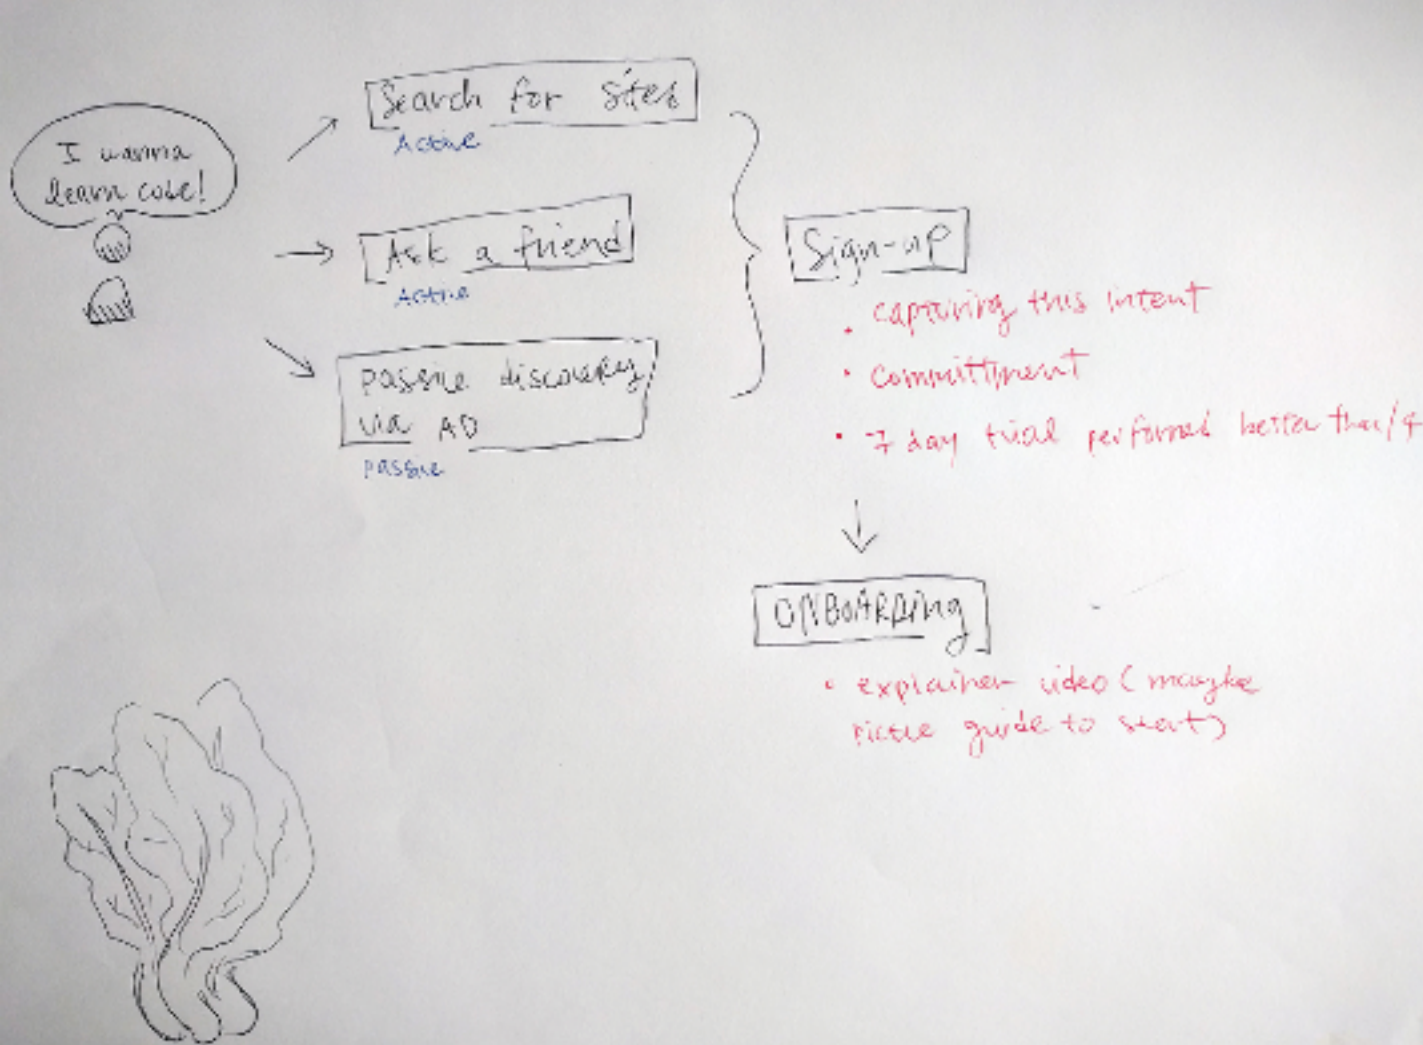 I wanna
learn code!
Search for sites
Active
Ask a friend
Active
passive discovery
via AD
passive
Sign-up
• capturing this intent
• committment
• 7 day trial performed better than
↓
ONBOARDing
• explainer video (maybe
guide to start)